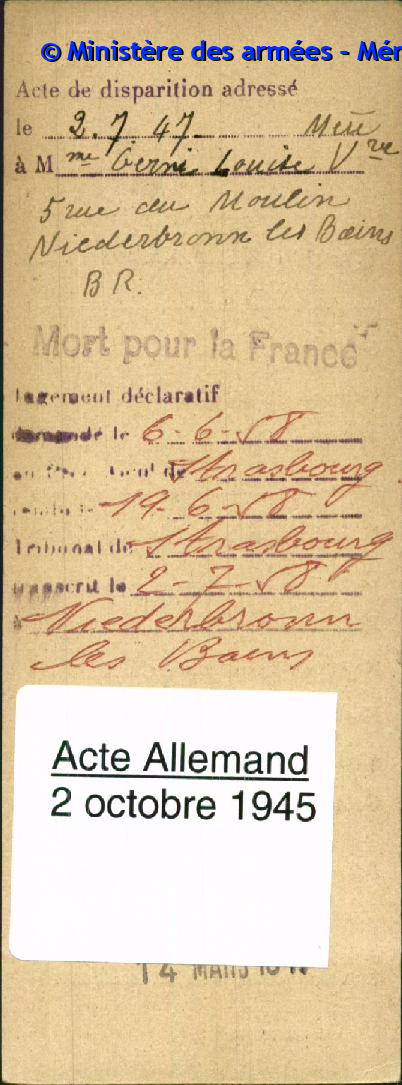 © Ministère des armées - Mém
Acte de disparition adressé
le 2.7 47
à M me Louise Vve
5 rue du Moulin
Niederbronn les Bains
B R.
Mort pour la France
Jugement déclaratif
demandé le 6-6-58
au Proc. Gal de Strasbourg
rendu le 19-6-58
Tribunal de Strasbourg
transcrit le 2-7-58
à Niederbronn
les Bains
Acte Allemand
2 octobre 1945
14 MARS